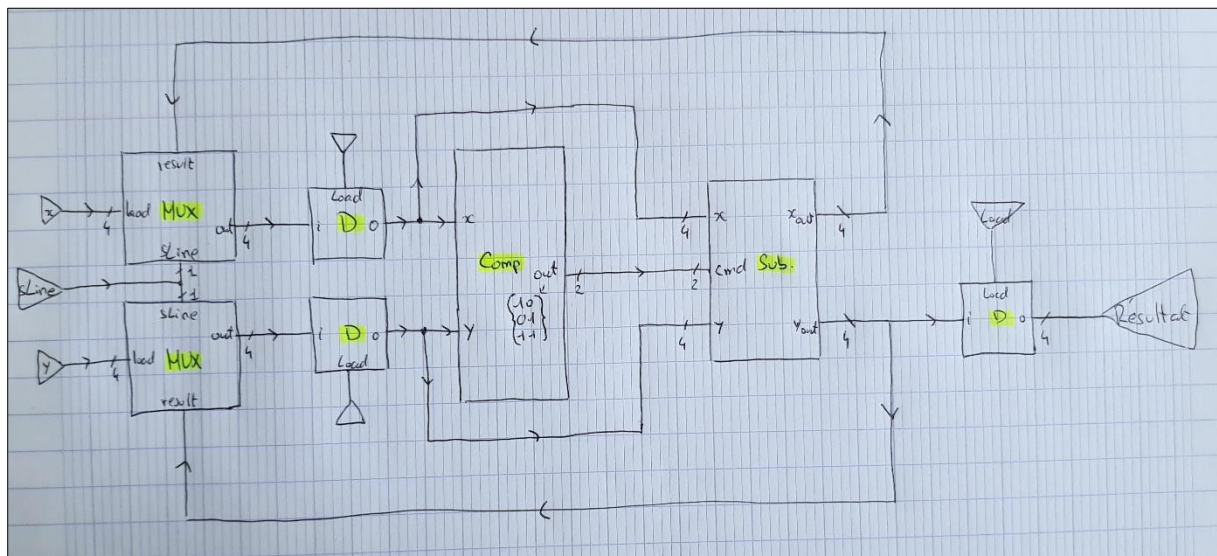 result
x
4
load
MUX
out
4
sLine
1
sLine
1
sLine
y
4
load
MUX
out
4
result
Load
i
D
o
i
D
o
Load
x
Comp
out
2
{10
01
11}
y
4
x
xout
4
2
cmd
Sub.
4
y
yout
4
Load
Load
i
D
o
4
Résultat